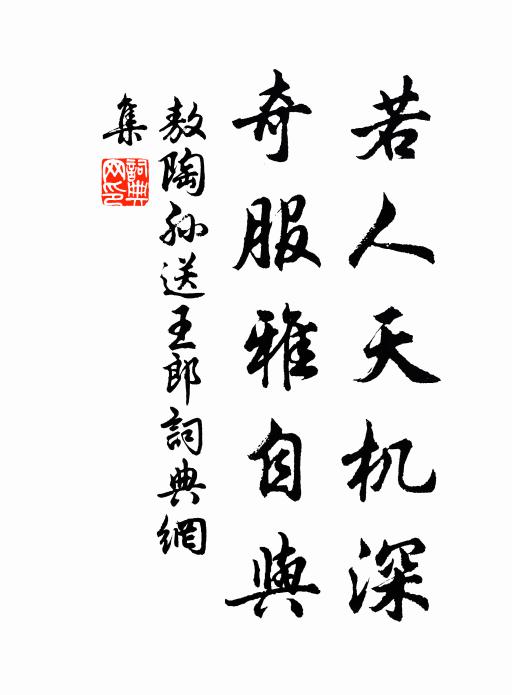 若人天机深
奇服雅自與
敖陶孙送王郎詞典網
集
詞典网印